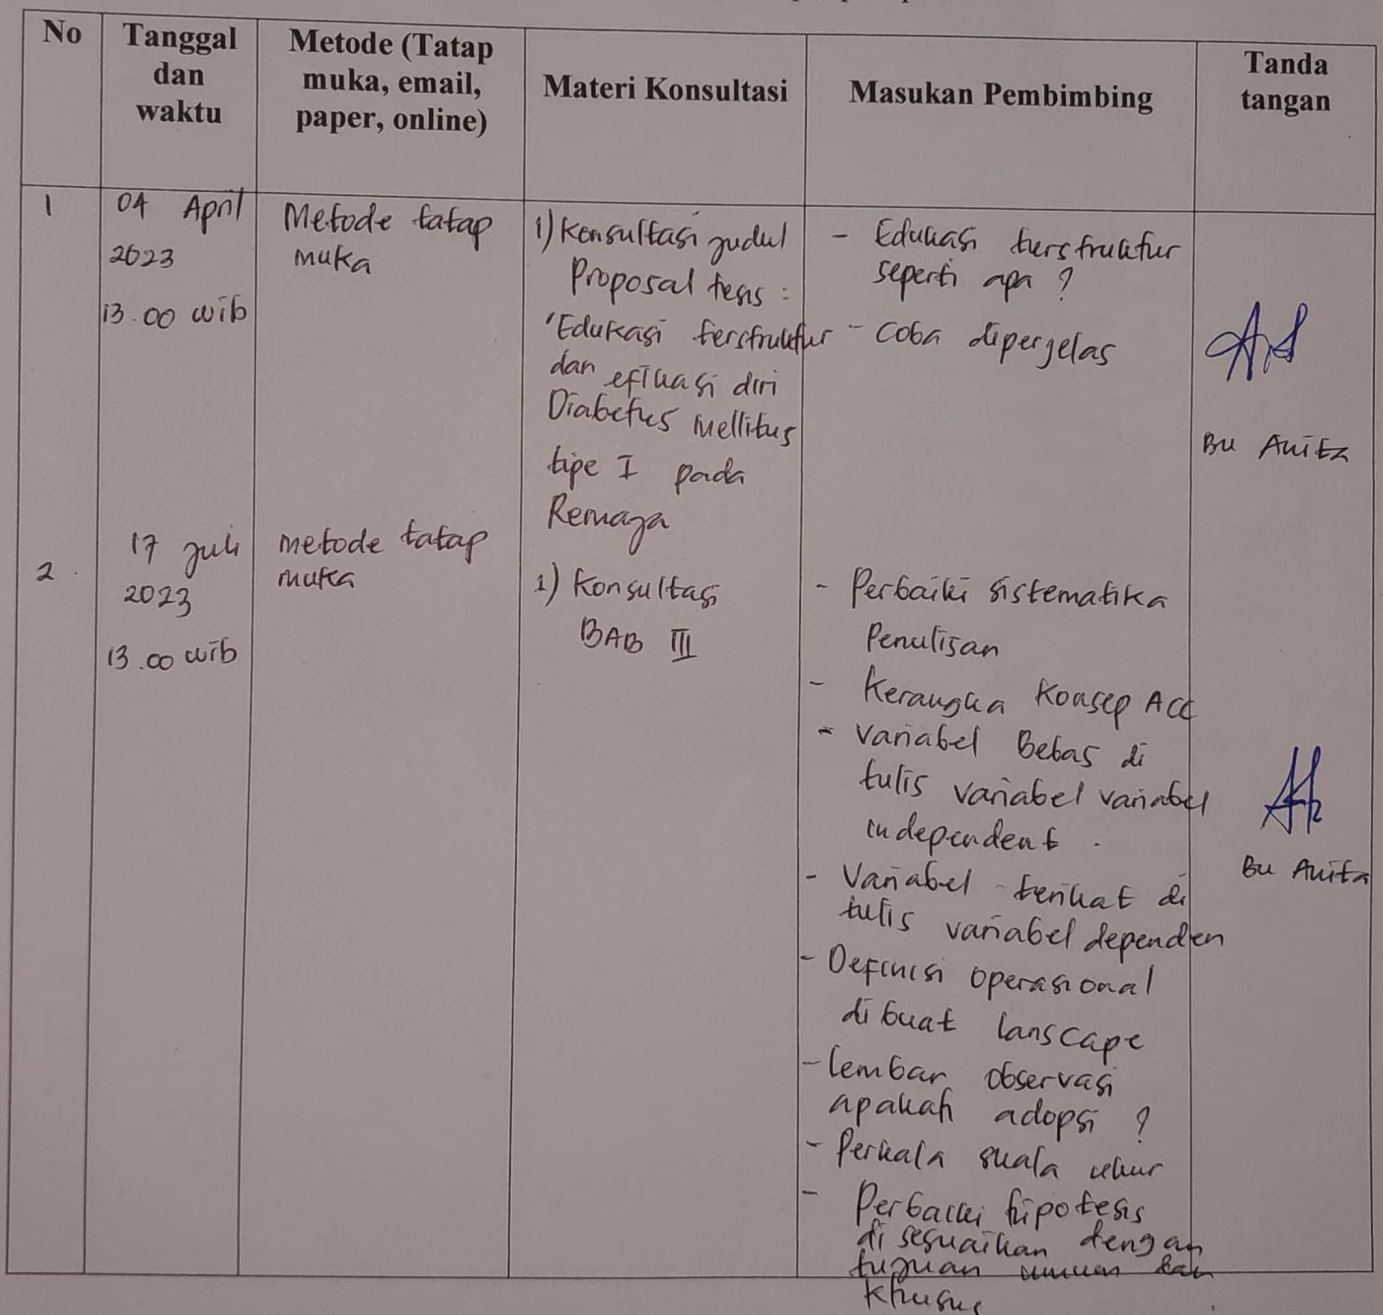 No
Tanggal
dan
waktu
Metode (Tatap
muka, email,
paper, online)
Materi Konsultasi
Masukan Pembimbing
Tanda
tangan
1
04 April
2023
13.00 wib
Metode tatap
muka
1) Konsultasi judul
Proposal tesis :
"Edukasi terstruktur
dan efikasi diri
Diabetus Mellitus
tipe I pada
Remaja
- Edukasi terstruktur
seperti apa ?
- Coba diperjelas
Bu Anita
2
17 Juli
2023
13.00 wib
metode tatap
muka
1) Konsultasi
BAB III
- Perbaiki sistematika
Penulisan
- Kerangka Konsep Acc
- Variabel Bebas di
tulis variabel variabel
independent .
- Variabel terikat di
tulis variabel dependen
- Definisi operasional
di buat lanscape
- lembar observasi
apakah adopsi ?
- Perkala skala ukur
- Perbaiki hipotesis
di sesuaikan dengan
tujuan umum dan
khusus
Bu Anita